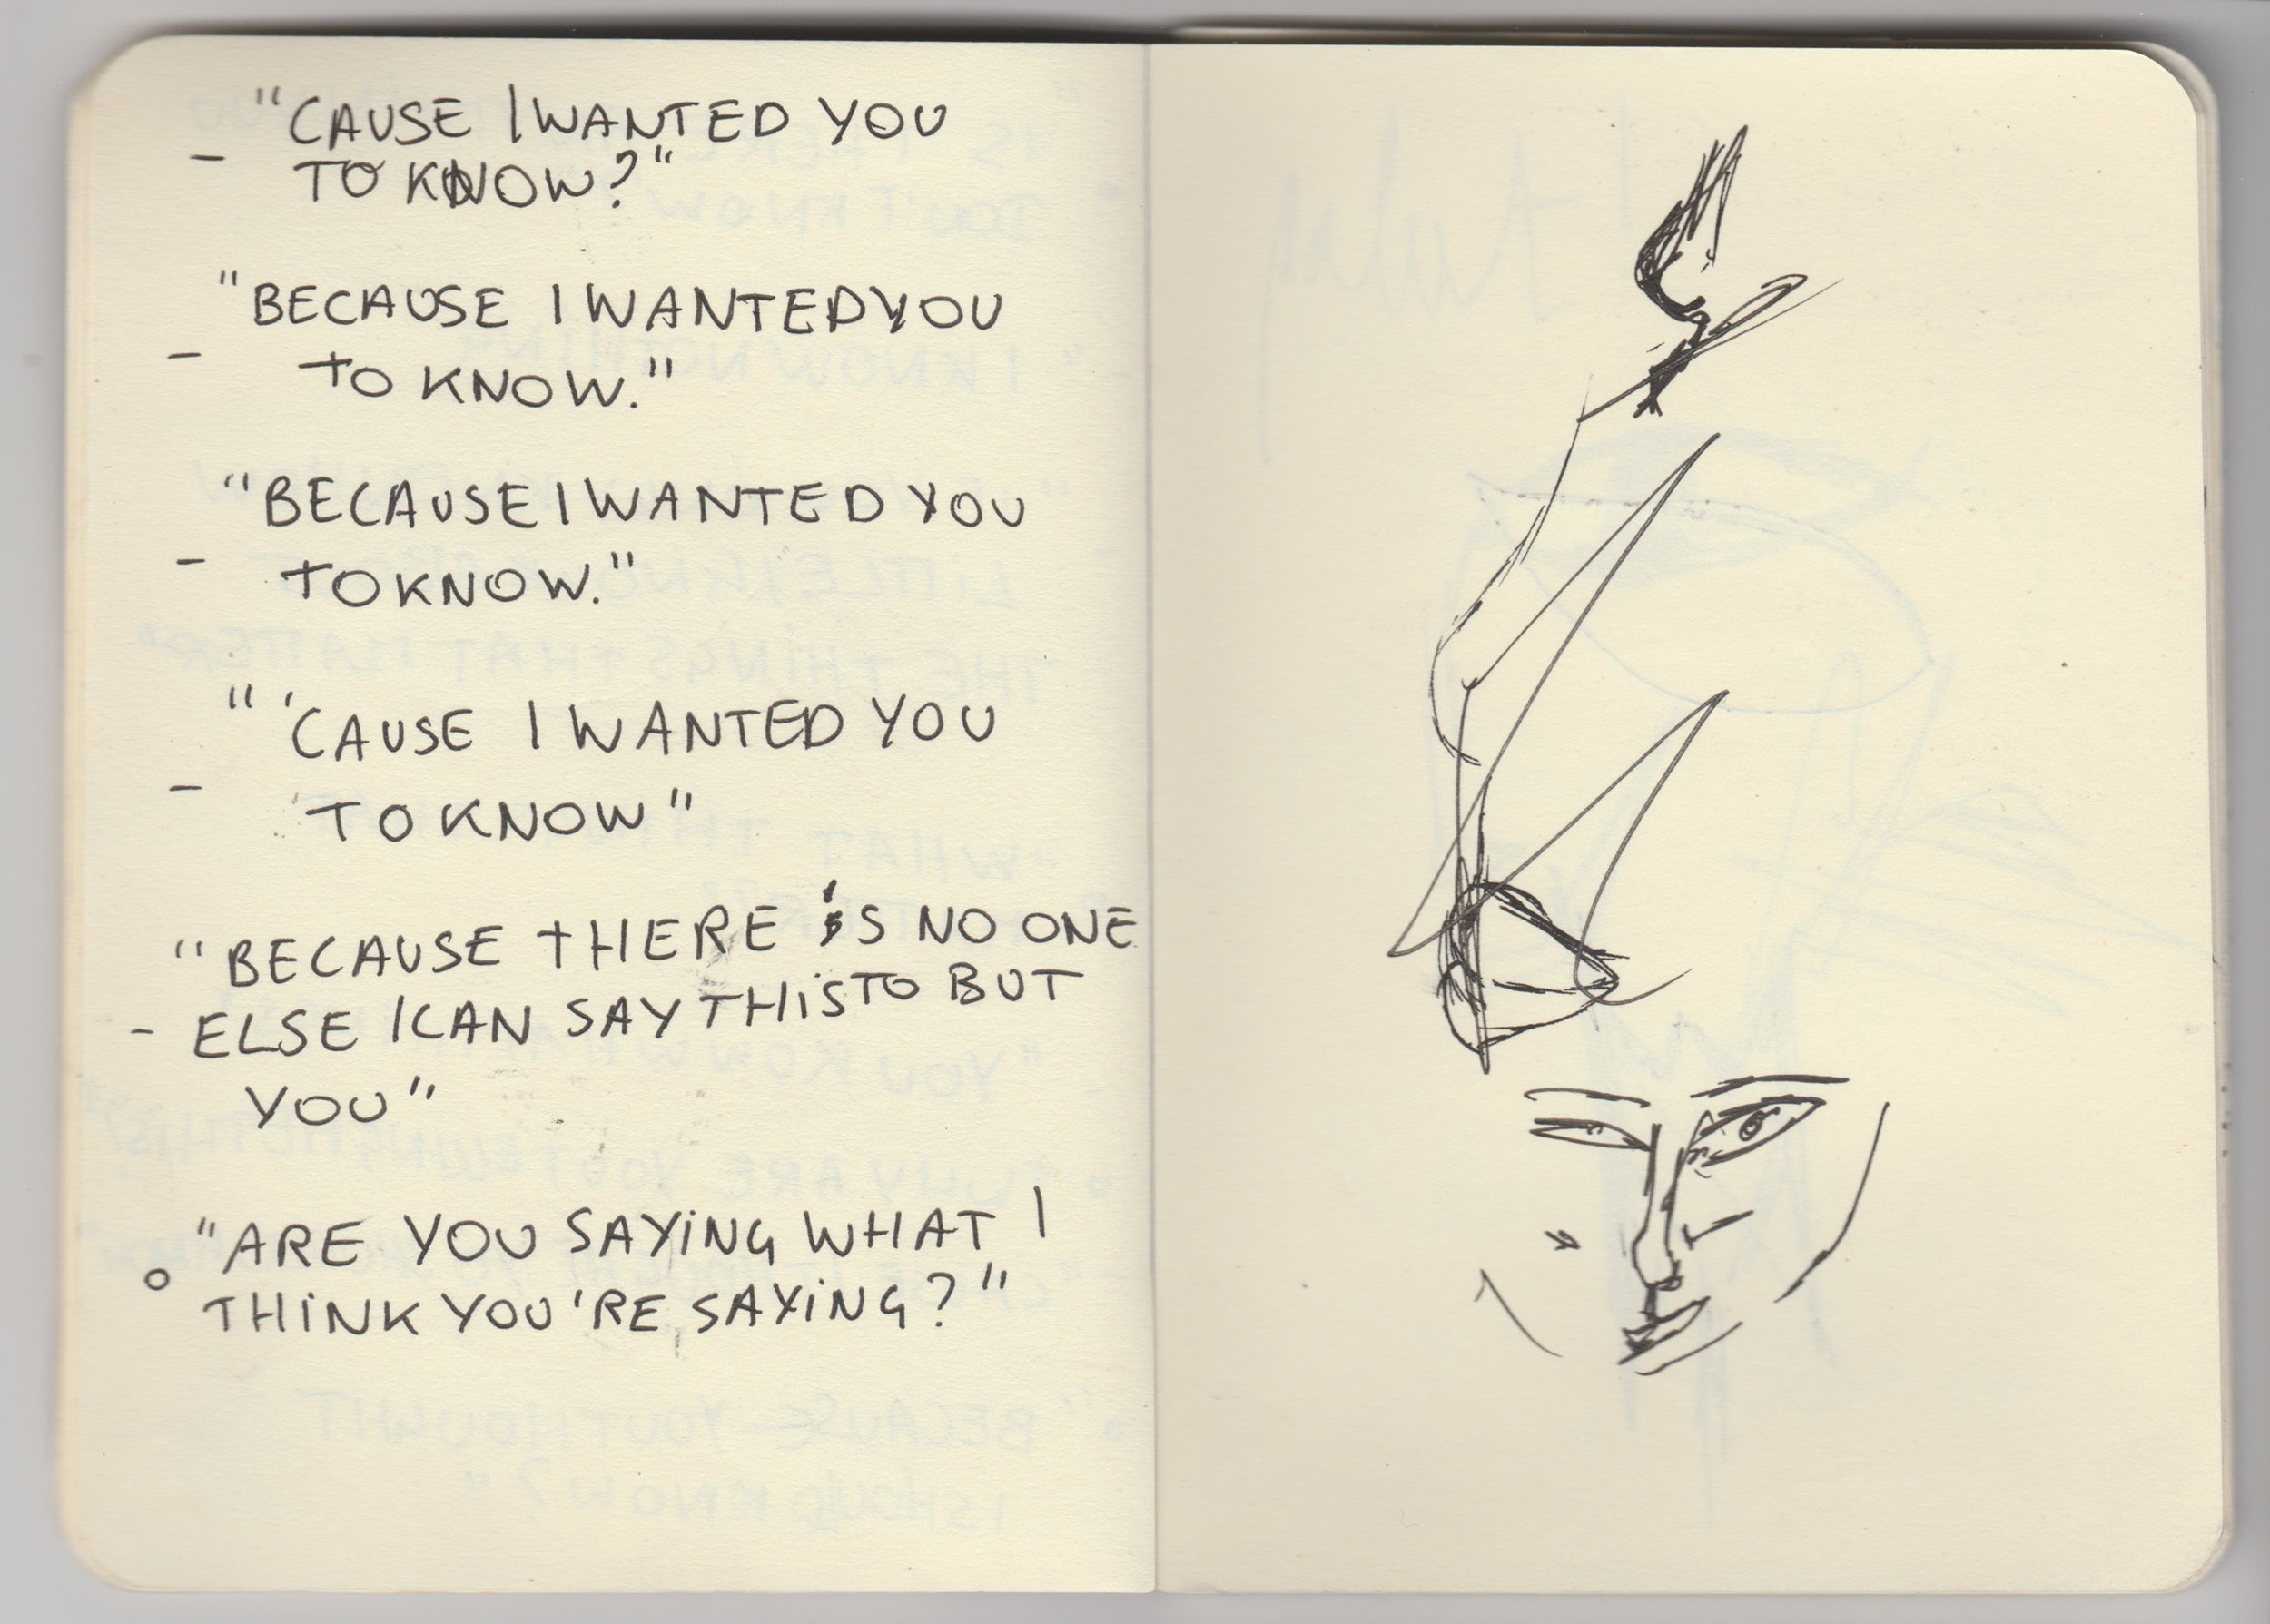 "CAUSE I WANTED YOU
- TO KNOW?"
"BECAUSE I WANTED YOU
- TO KNOW."
"BECAUSE I WANTED YOU
- TO KNOW."
"'CAUSE I WANTED YOU
- TO KNOW"
"BECAUSE THERE IS NO ONE
- ELSE I CAN SAY THIS TO BUT
YOU"
"ARE YOU SAYING WHAT I
o THINK YOU'RE SAYING?"